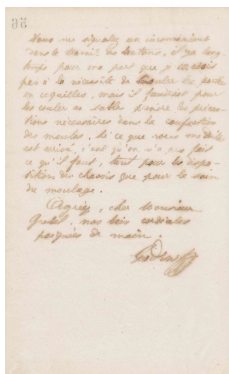 56
Vous me signalez un inconvénient
dans le travail des tentons, il y a long
temps pour ma part que je croyais
pas à la nécessité de couler les
en coquilles, mais il faudrait pour
les couler au sable prendre les précau
tions nécessaires dans la confection
des moules. Si ce que vous me dites
est arrivé, c'est qu'on n'a pas fait
ce qu'il faut, tant pour les dispo
sition des chassis que pour le soin
du moulage.
Agréez, cher Monsieur
nos bien cordiales
poignées de main.